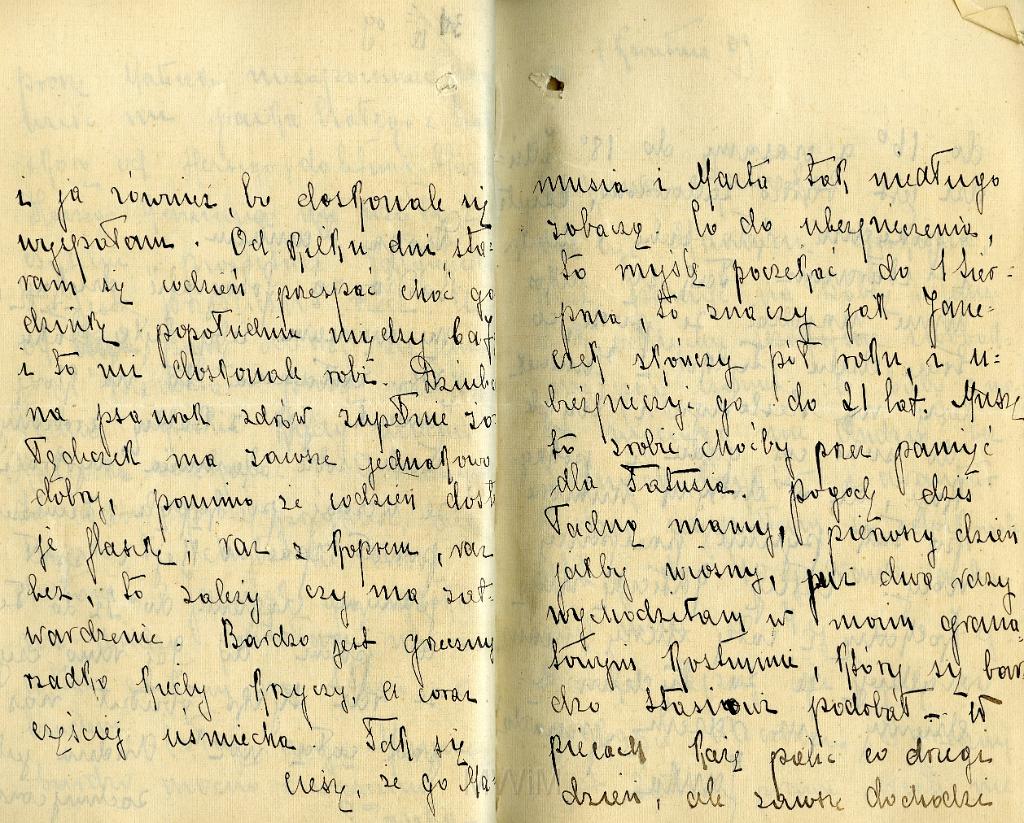 i ja również, bo doskonale się
wysypiałam. Od kilku dni sta-
ram się codzień przespać choć go
dzinkę popołudniu między
i to mi doskonale robi. Dziub
na ptaszek zdrów zupełnie żo
łądeczek ma zawsze jednakowo
dobry, pomimo że codzień dost
je flaszkę, raz z koprem, raz
bez, to zależy czy ma zat-
wardzenie. Bardzo jest grzeczny
rzadko kiedy krzyczy a coraz
częściej uśmiecha. Tak się
cieszę, że go Ma-
musia i Marta tak niedługo
zobaczą. Co do ubezpieczenia,
to myślę poczekać do 1 Sier-
pnia, to znaczy jak Jane-
czek skończy pół roku, i u-
bezpieczyć go do 21 lat. Muszę
to zrobić choćby przez pamięć
dla Tatusia. Pogodę dziś
ładną mamy, pierwszy dzień
jakby wiosny, już dwa razy
wychodziłam w moim grana-
towym kostiumie, który się bar
dzo Stasiowi podobał – W
piecach każę palić co drugi
dzień, ale zawsze dochodzi